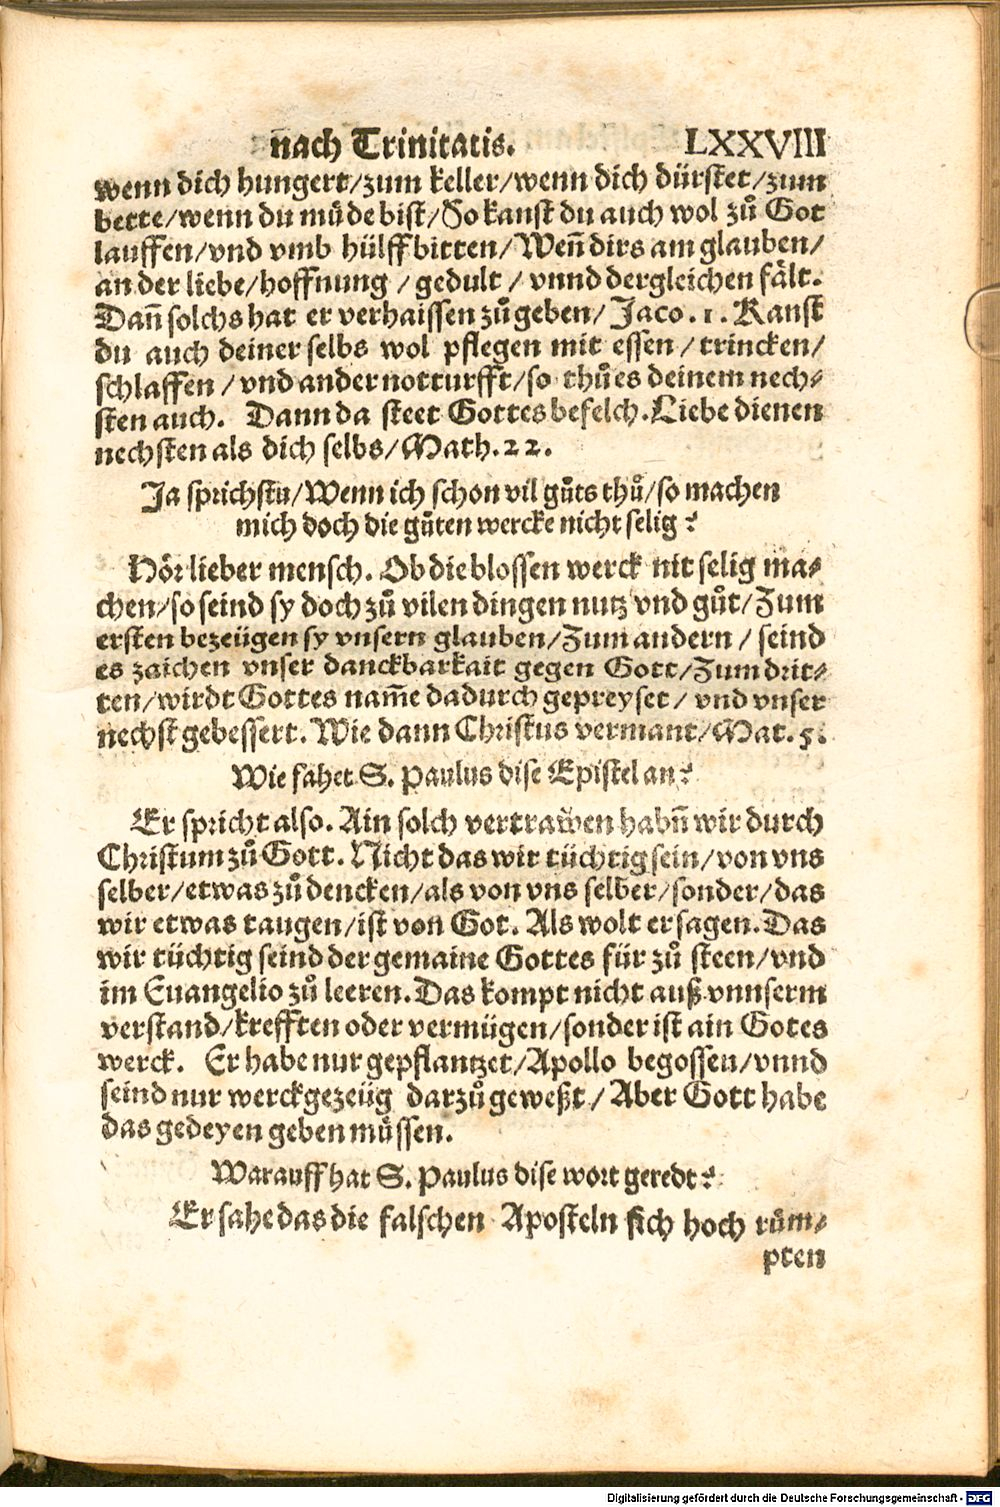 nach Trinitatis. LXXVIII
wenn dich hungert/zum keller/wenn dich dürstet/zum
bette/wenn du müde bist/So kanst du auch wol zů Got
lauffen/vnd vmb hülff bitten/Weñ dirs am glauben/
an der liebe/hoffnung / gedult / vnnd dergleichen fält.
Dañ solchs hat er verhaissen zůgeben/ Jaco.1. Kanst
du auch deiner selbs wol pflegen mit essen/trincken/
schlaffen / vnd ander notturfft/so thů es deinem nech⸗
sten auch. Dann da steet Gottes befelch. Liebe dienen
nechsten als dich selbs/Math.22.
Ja sprichstu/Wenn ich schon vil gůts thů/so machen
mich doch die gůten wercke nicht selig?
Hör lieber mensch. Ob die blossen werck nit selig ma⸗
chen/so seind sy doch zů vilen dingen nutz vnd gůt/Zum
ersten bezeügen sy vnsern glauben/Zum andern / seind
es zaichen vnser danckbarkait gegen Gott/Zum drit⸗
ten/wirdt Gottes nam̄e dadurch gepreyset / vnd vnser
nechst gebessert. Wie dann Christus vermant/Mat.5.
Wie fahet S. Paulus dise Epistel an?
Er spricht also. Ain solch vertrawen habñ wir durch
Christum zů Gott. Nicht das wir tüchtig sein/von vns
selber/etwas zů dencken/als von vns selber/sonder/das
wir etwas taugen/ist von Got. Als wolt er sagen. Das
wir tüchtig seind der gemaine Gottes für zů steen/vnd
im Euangelio zů leeren. Das kompt nicht auß vnnserm
verstand/krefften oder vermügen/sonder ist ain Gotes
werck. Er habe nur gepflantzet/Apollo begossen/vnnd
seind nur werckgezeüg darzů geweßt / Aber Gott habe
das gedeyen geben müssen.
Warauff hat S. Paulus dise wort geredt?
Er sahe das die falschen Aposteln sich hoch rům⸗
pten
Digitalisierung gefördert durch die Deutsche Forschungsgemeinschaft - DFG